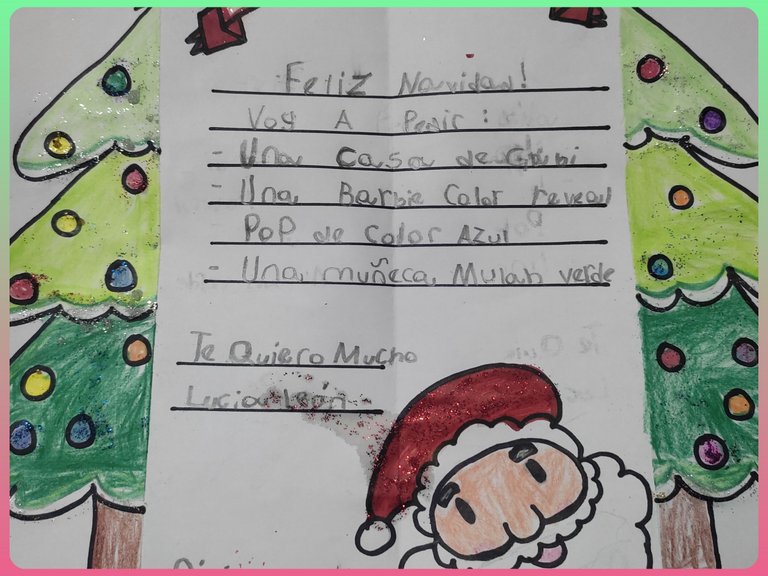 Feliz Navidad!
Voy A Pedir:
- Una casa de
- Una Barbie Color reveal
Pop de color Azul
- Una muñeca Mulan verde
Te Quiero Mucho
Lucia León